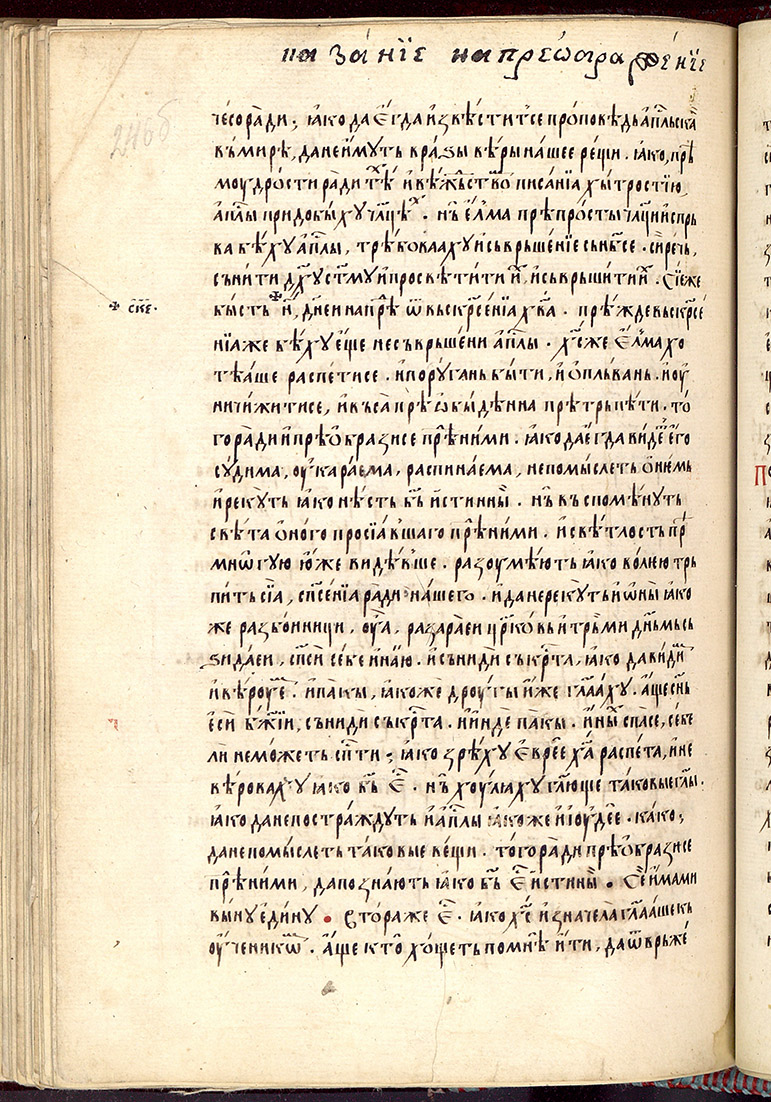 на За́нїе на преѡбраже́нїе
246б
чесо̀ра́ди ; ꙗ҆́ко да є҆гда̀ и҆зве́ститсе про́пове́дь а҆пⷭ҇льскаа̀
въми́рѣ , да не и҆́муть кра́зы вѣ́ры на́шее ре́щи . ꙗ҆́ко , прѣ
моу́дрости ра́ди и҆ вѣ́жьство писа́нїа хы́тростїю
а҆пⷭ҇лы придобы́ху . нъ̀ є҆лма прѣпро́сты
ка бѣ́ху а҆пⷭ҇лы , трѣ́боваахуи съврьше́нїе сънѝбѡсе . си́рѣчь ,
съни́ти дх҃у ст҃му и просвѣти́ти и҆̀х , и҆ съврьши́ти и҆̀х . Сїе́же
бы́сть , дн҃еи на прѣ ѿ въскрⷭ҇е́нїа хв҃а . прѣ́жде въскрⷭ҇е́
нїа же бѣ́ху є҆́ще несъврьше́ни а҆пⷭ҇лы . хс҃ же є҆лма хо
тѣ́аше распе́тисе . и҆ пору́ганъ бы́ти , и҆ ѡ҆плю́ванъ . и҆ оу҆
ничи́житисе , и҆ въса̀ прѣѡбы́дѣнна прѣтрьпѣ́ти . то́
го ра́ди и҆ прѣѡбрази́се прѣⷣ ни́ми . ꙗ҆́ко да є҆гда̀ ви́деⷮ є҆го̀
су́дима , оу҆кара́ема , распина́ема , не помы́слеть ѡ҆ не́мь
и҆ реку́ть ꙗ҆́ко нѣ́сть бг҃ъ и҆́стинны . нъ̀ въспоме́нуть
свѣ́та ѡ҆́ного просїа́вшаго прѣⷣ ни́ми . и҆ свѣ́тлость прѣ
мнѡ́гую ю҆́же ви́дѣвше . разоумѣ́ють ꙗ҆́ко во́лею трь
пи́ть сїа̀ , сп҃се́нїа ра́ди на́шего . и҆ да не реку́ть и҆ ѡ҆́ны ꙗ҆́ко
же разбо́иници . оу҆а̀ , разара́еи цр҃ко́вь и҆ трьмѝ дн҃ьмы съ
ѕида́еи , сп҃сѝ се́бе и҆ на́ю . и҆ сънидѝ съ крⷭ҇та , ꙗ҆́ко да ви́диⷨ
и҆ вѣ́роуеⷨ . и҆ па́кы , ꙗ҆́коже дроу́гы и҆́же гл҃а́аху . а҆́ще сн҃ь
є҆сѝ бж҃їи , сънидѝ съ крⷭ҇та . и҆ и҆́нде па́кы . и҆́ныⷯ сп҃се , се́бе
ли не мо́жеть сп҃сти ; ꙗ҆́ко зрѣ́ху є҆вре́е ха҃ распе́та , и҆ не
вѣ́роваху ꙗ҆́ко бг҃ъ єⷭ҇ . нъ̀ хоу́ляху гл҃юще та́ковые гл҃ы .
ꙗ҆́ко да не постра́ждуть и҆ а҆пⷭ҇лы ꙗ҆́коже и҆ і҆ꙋде́е . ка́ко ;
да не помы́слеть та́ковые ве́щи . то́го ра́ди прѣѡбрази́се
прѣⷣ ни́ми , да позна́ють ꙗ҆́ко бг҃ъ єⷭ҇ и҆́стинны . Се̏ и҆́мами
вы́ну є҆ди́ну . вто́ра же єⷭ҇ . ꙗ҆́ко хс҃ и҆значе́ла гл҃а́аше къ
оу҆ченикѡⷨ . а҆́ще кто̀ хо́щеть по мнѣ̀ и҆́ти , да ѿврьже́